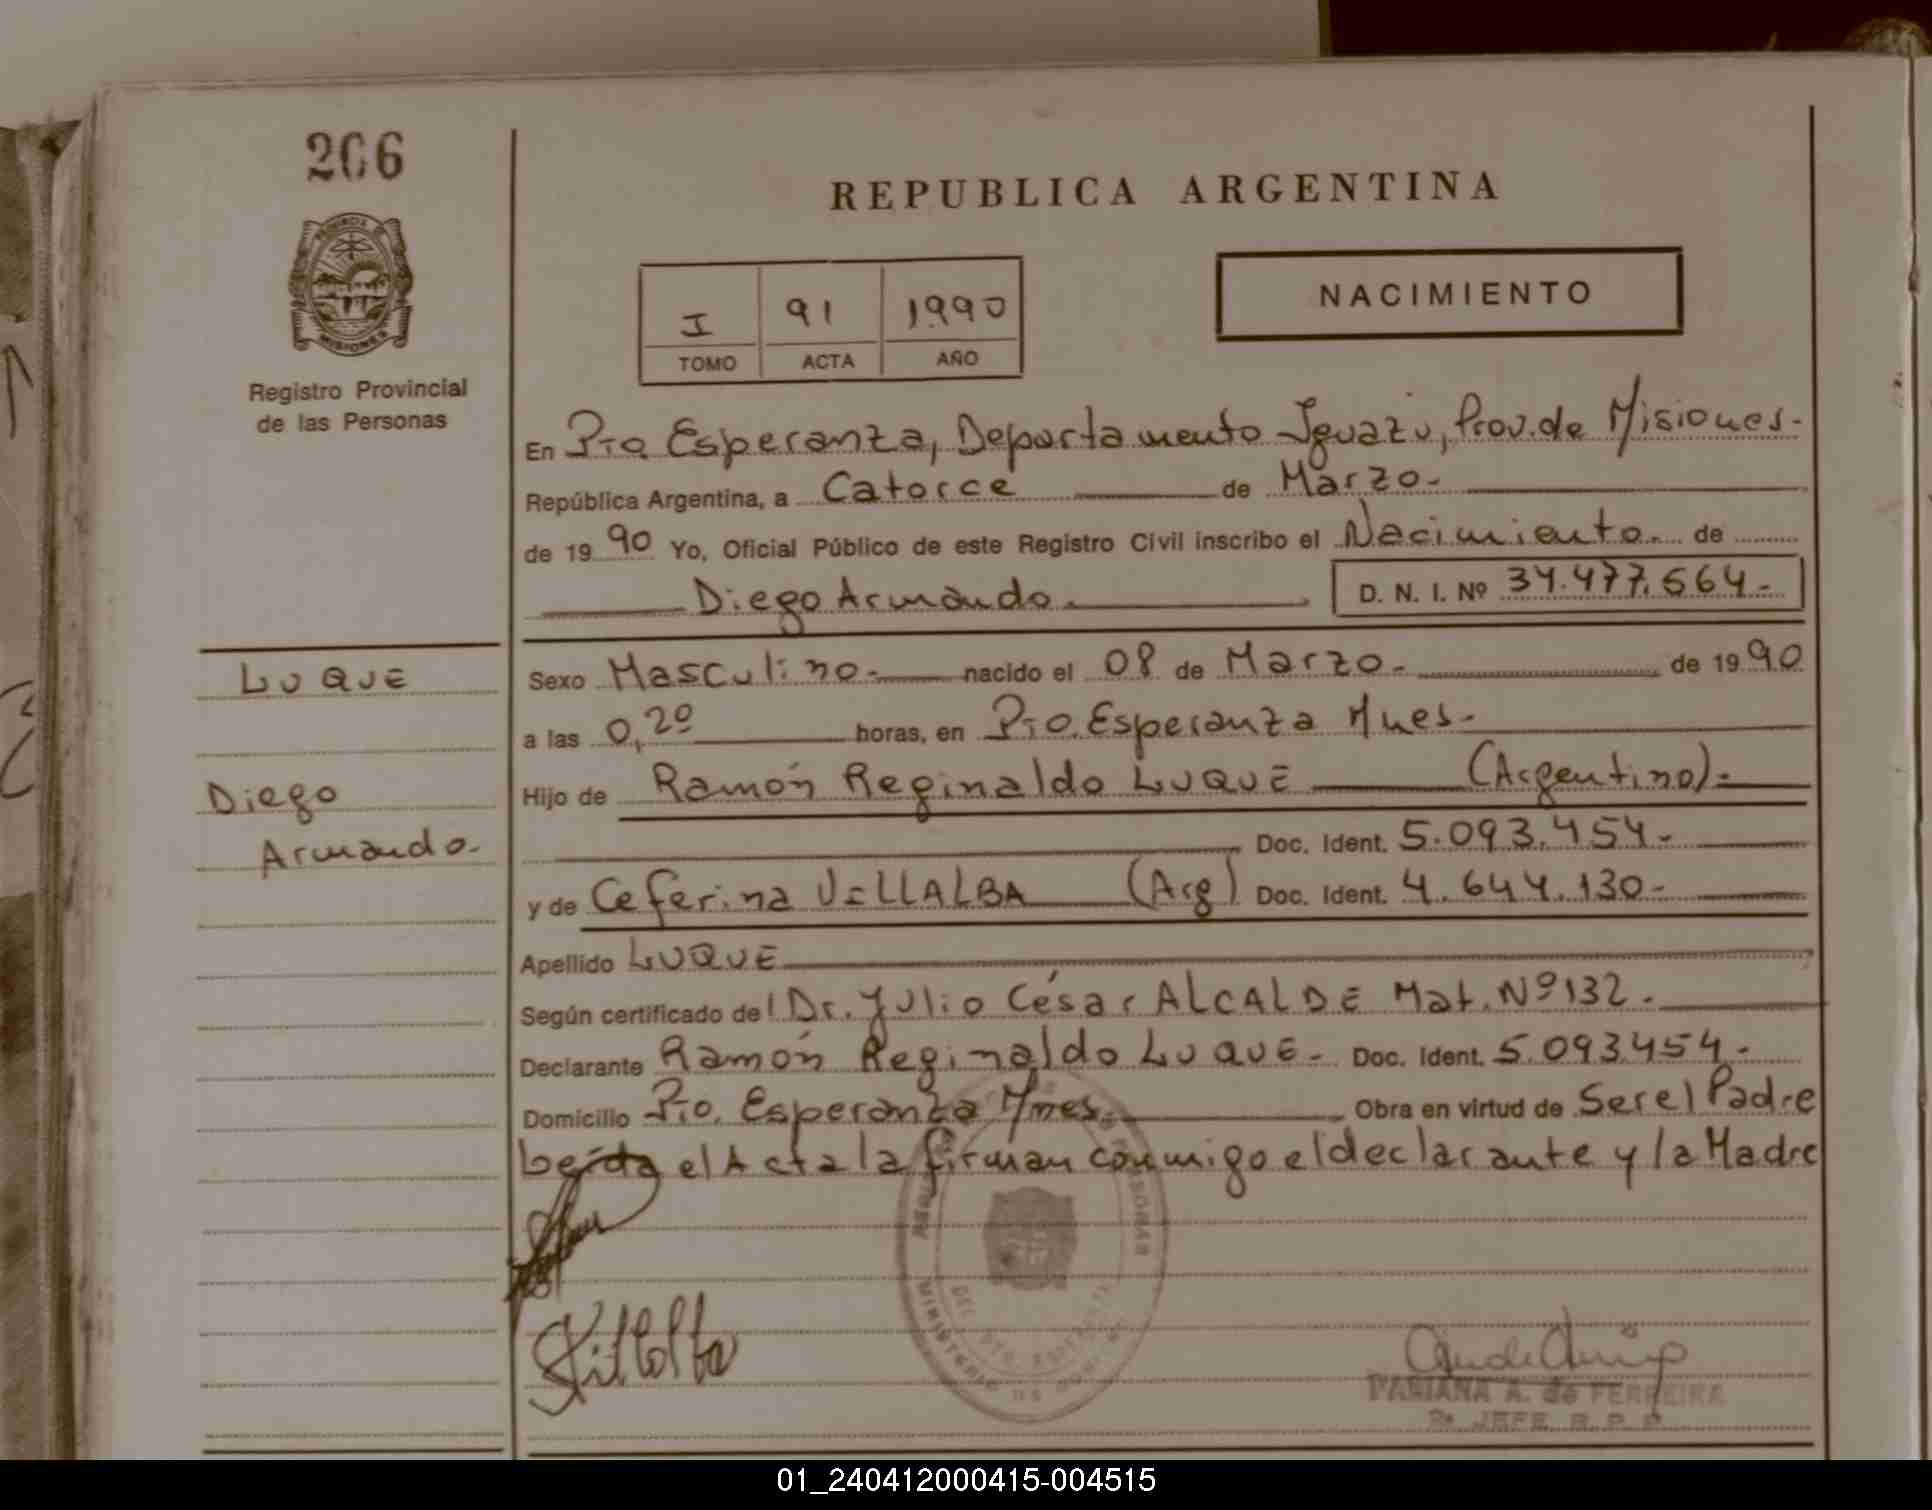 206
PROVINCIA D
MISIONES
Registro Provincial
de las Personas
REPUBLICA ARGENTINA
I 91 1990
TOMO ACTA AÑO
NACIMIENTO
En Pto. Esperanza, Departamento Iguazú, Prov. de Misiones.-
República Argentina, a Catorce de Marzo.-
de 1990 Yo, Oficial Público de este Registro Civil inscribo el Nacimiento.- de
Diego Armando.
D. N. I. Nº 34.477.564.-
LUQUE
Diego
Armando.-
Sexo Masculino.- nacido el 08 de Marzo.- de 1990
a las 0,20 horas, en Pto. Esperanza Mnes.-
Hijo de Ramón Reginaldo LUQUE (Argentino).-
Doc. Ident. 5.093.454.-
y de Ceferina VILLALBA (Arg) Doc. Ident. 4.644.130.-
Apellido LUQUE
Según certificado del Dr. Julio César ALCALDE Mat. Nº 132.
Declarante Ramón Reginaldo LUQUE.- Doc. Ident. 5.093454.-
Domicilio Pto. Esperanza Mnes. Obra en virtud de Ser el Padre
Leída el Acta la firman conmigo el declarante y la Madre
MINISTERIO DE
A. de FERREIRA
JEFE R. P. P.
01_240412000415-004515